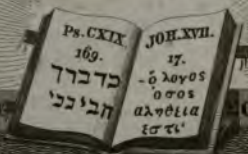 Ps. CXIX.
169.
כדברך
הבינני
JOH. XVII.
17.
- ὁ λογος
ὁ σος
αληθεια
ἐστι